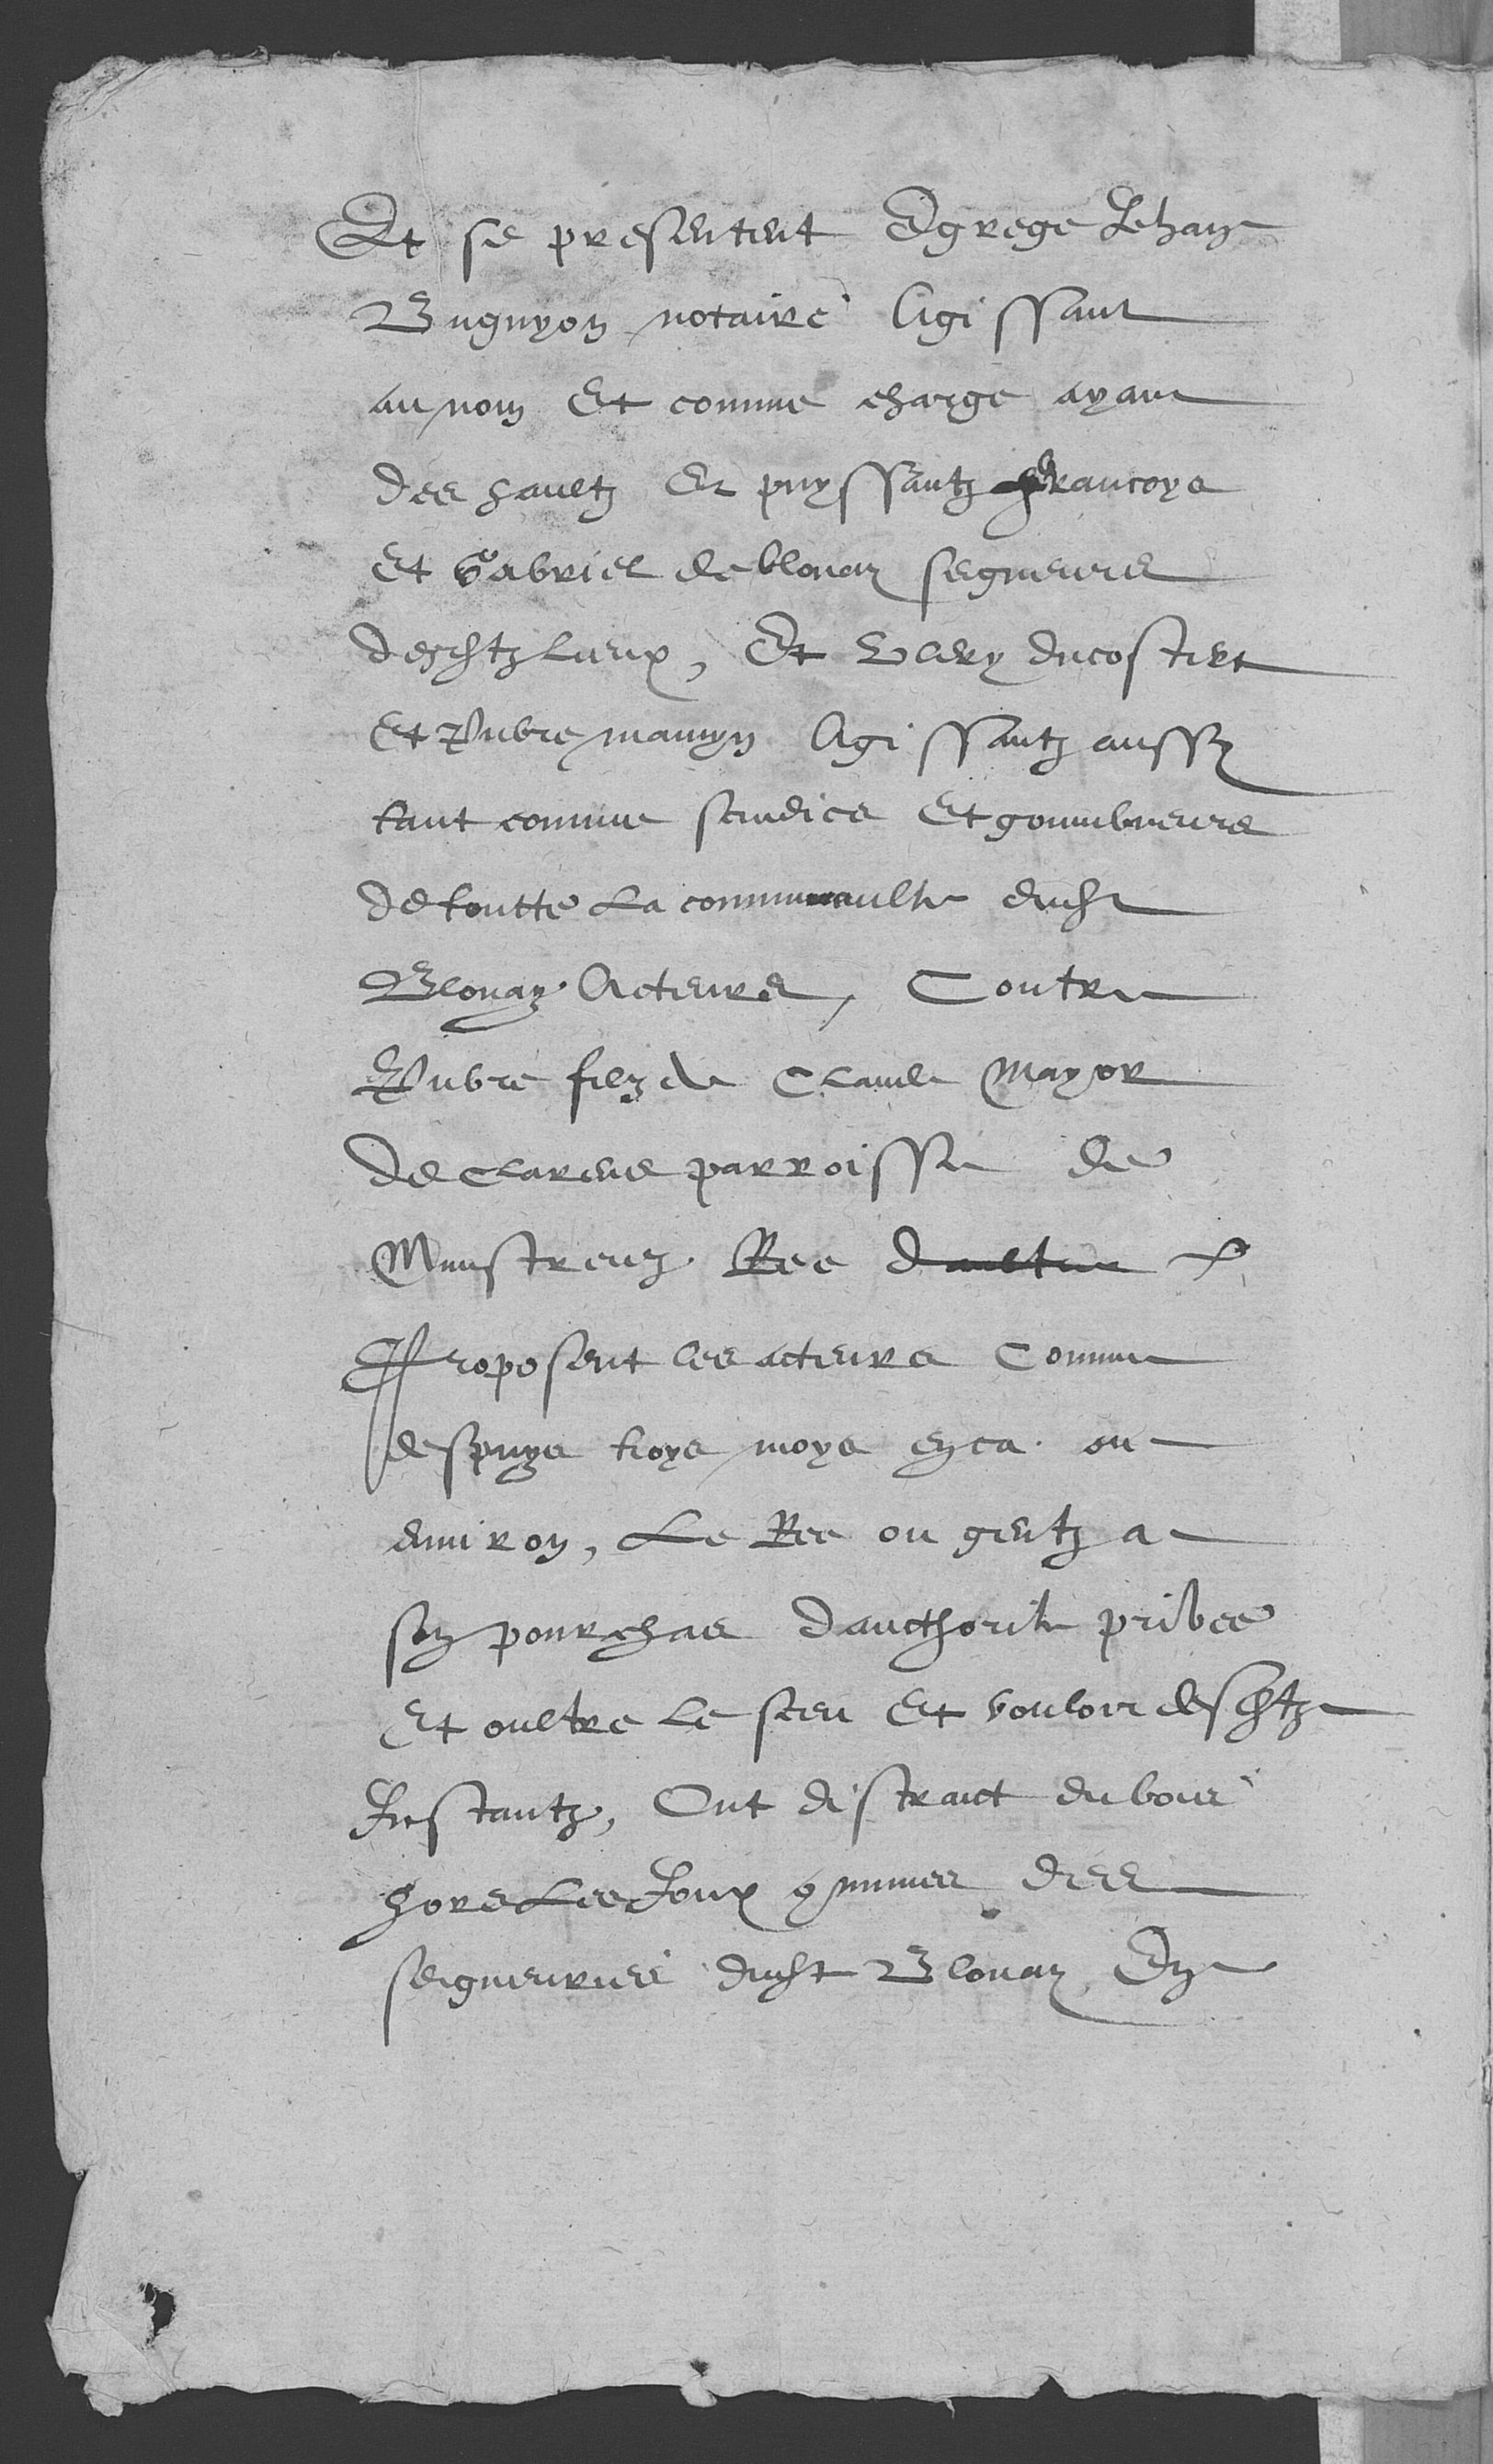 Et se presentent Egrege Jehan
Bugnyon notaire Agissant
au nom Et comme charge ayant
des haultz Et puyssantz Francoys
Et Gabriel de blonay segneurs
desdtz lieux, Et Vlery ducostert
Et Pierre mamyn Agissantz aussy
tant comme scindics Et gouuerneurs
de toutte La communaulte dudt
Blonay Acteurs, Contre
Pierre filz de Claude Mayor
de Clarens parroisse de
Mustreuz Ree
Proposent les acteurs Comme
despuys troys moys en ca ou
enuiron, Le Ree ou gentz a
son pourchas d'aucthorite priuee
Et oultre le sceu Et vouloir desdtz
Instantz, Ont distraict du bois
hors Les Joux communes des
seigneuries dudt Blonay En